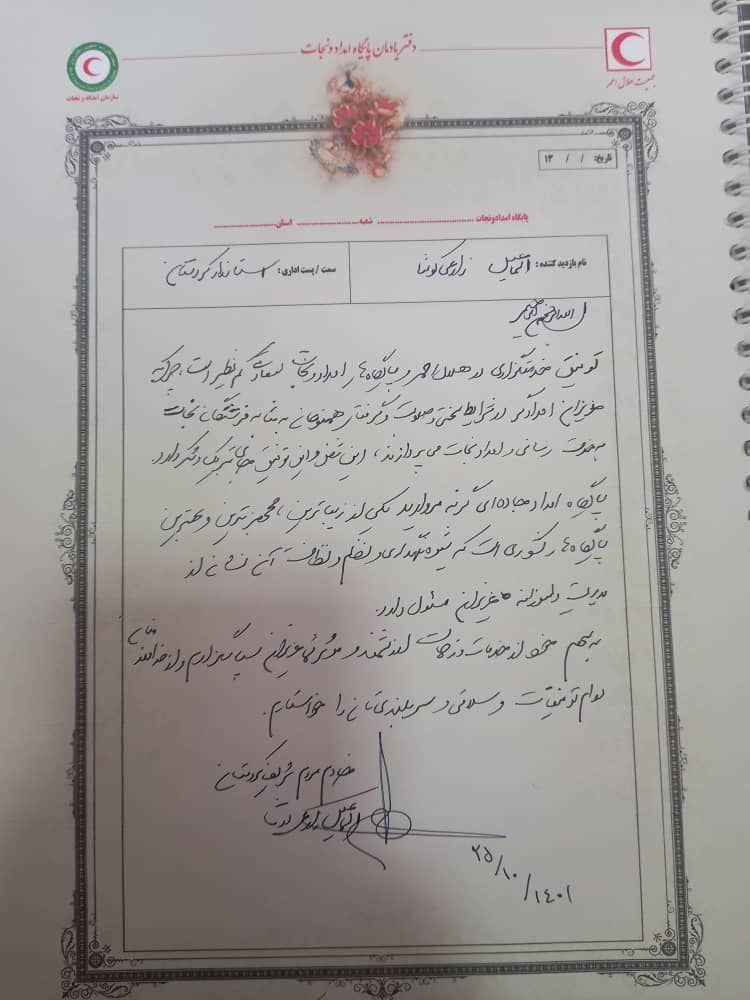 دفتر یادمان پایگاه امداد و نجات
جمعیت هلال احمر
سازمان امداد و نجات
تاریخ: / / ۱۳
پایگاه امداد و نجات ........ شعبه ........ استان ........
نام بازدید کننده: اسماعیل زارعی کوشا
سمت / پست اداری: استاندار کردستان
بسم الله الرحمن الرحیم
توفیق خدمتگزاری در هلال احمر و پایگاه های امداد و نجات سعادتی کم نظیر است، چرا که
عزیزان امدادگر در شرایط سختی و صعوبت و گرفتاری همنوعان به مثابه فرشتگان نجات
به خدمت رسانی و امداد نجات می پردازند، این شغل و این توفیق جای تبریک دارد.
پایگاه امداد جاده ای گرنه مروارید یکی از زیباترین، مجهزترین و بهترین
پایگاه های کشوری است که شیوه نگهداری و نظم و نظافت آن نشان از
مدیریت دلسوزانه عزیزان مسئول دارد.
به سهم خود از خدمات و زحمات ارزشمند و موثر شما عزیزان سپاسگزارم و از خداوند منان
دوام توفیقات و سلامتی و سربلندی تان را خواستارم.
خادم مردم شریف کردستان
اسماعیل زارعی کوشا
۱۴۰۱/۱۰/۲۵